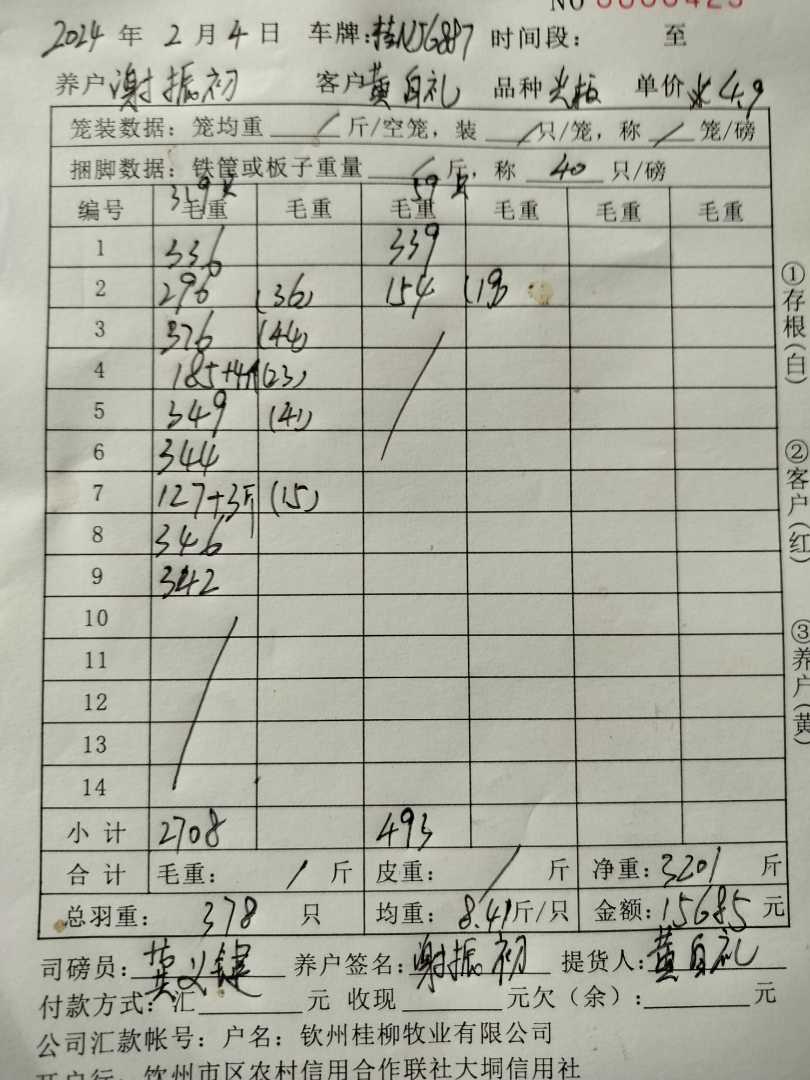 NO 0000425
2024 年 2 月 4 日 车牌:桂NJ6887 时间段: 至
养户 谢振初 客户 黄自礼 品种 光板 单价 4.9
笼装数据: 笼均重 / 斤/空笼, 装 / 只/笼, 称 / 笼/磅
捆脚数据: 铁筐或板子重量 / 斤, 称 40 只/磅
319只 59只
编号 毛重 毛重 毛重 毛重 毛重 毛重
1 336 339
2 296 (36) 154 (19)
3 376 (44)
4 185+4斤 (23)
5 349 (41)
6 344
7 127+3斤 (15)
8 346
9 342
10
11
12
13
14
小 计 2708 493
合 计 毛重: / 斤 皮重: / 斤 净重:3201 斤
总羽重: 378 只 均重: 8.47斤/只 金额:15685 元
司磅员: 黄义健 养户签名:谢振初 提货人:黄自礼
付款方式: 汇 元 收现 元欠(余): 元
公司汇款帐号: 户名: 钦州桂柳牧业有限公司
开户行: 钦州市区农村信用合作联社大垌信用社
①存根(白)
②客户(红)
③养户(黄)